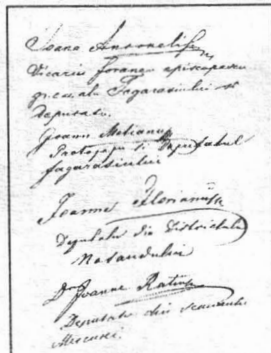 Ioane Antonelli
Vicariu foraneu episcopescu
gr. c. alu Fagarasiului si
Deputatu.
Ioann Metianu
Protopopu si Deputatul
fagarasiului
Ioanne Florianu
Deputatu din Districtulu
Nasaudului
Dr Ioanne Ratiu
Deputatu din scaunulu